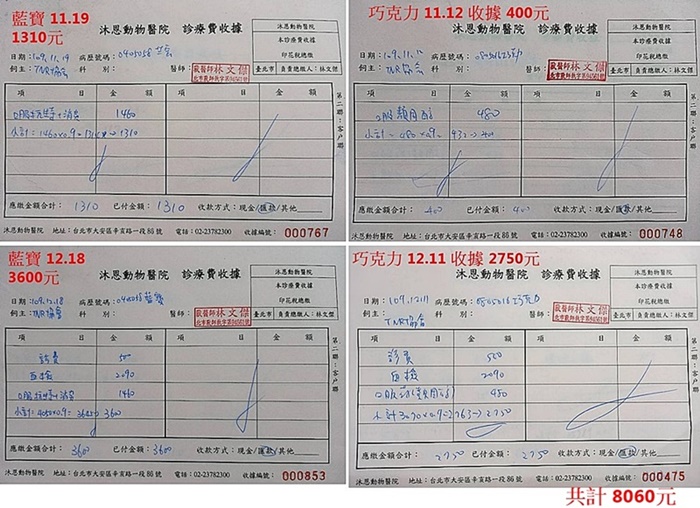 藍寶 11.19
1310元
沐恩動物醫院 診療費收據
沐恩動物醫院
本診療費收據
印花稅總繳
日期：109.11.19 病歷號碼：
飼主：TNR協會 科別： 醫師：
獸醫師林文傑
臺北市 負責總繳人：林文傑
項 目 金 額 項 目 金 額
1460
小計=1460x0.9=1314→1310
第二聯：客戶聯
應繳金額合計：1310 已付金額：1310 收款方式：現金/匯款/其他
沐恩動物醫院 地址：台北市大安區辛亥路一段86號 電話：02-23782300 收據編號：000767
巧克力 11.12 收據 400元
沐恩動物醫院 診療費收據
沐恩動物醫院
本診療費收據
印花稅總繳
日期：109.11.12 病歷號碼：
飼主：TNR協會 科別： 醫師：
獸醫師林文傑
臺北市 負責總繳人：林文傑
項 目 金 額 項 目 金 額
480
第二聯：客戶聯
應繳金額合計：400 已付金額：400 收款方式：現金/匯款/其他
沐恩動物醫院 地址：台北市大安區辛亥路一段86號 電話：02-23782300 收據編號：000748
藍寶 12.18
3600元
沐恩動物醫院 診療費收據
沐恩動物醫院
本診療費收據
印花稅總繳
日期：109.12.18 病歷號碼：
飼主：TNR協會 科別： 醫師：
獸醫師林文傑
臺北市 負責總繳人：林文傑
項 目 金 額 項 目 金 額
診費 500
血檢 2090
1460
小計=4050x0.9=3645→3600
第二聯：客戶聯
應繳金額合計：3600 已付金額：3600 收款方式：現金/匯款/其他
沐恩動物醫院 地址：台北市大安區辛亥路一段86號 電話：02-23782300 收據編號：000853
巧克力 12.11 收據 2750元
沐恩動物醫院 診療費收據
沐恩動物醫院
本診療費收據
印花稅總繳
日期：109.12.11 病歷號碼：
飼主：TNR協會 科別： 醫師：
獸醫師林文傑
臺北市 負責總繳人：林文傑
項 目 金 額 項 目 金 額
診費 500
血檢 2090
480
小計3070x0.9=2763→2750
第二聯：客戶聯
應繳金額合計：2750 已付金額：2750 收款方式：現金/匯款/其他
沐恩動物醫院 地址：台北市大安區辛亥路一段86號 電話：02-23782300 收據編號：000475
共計 8060元